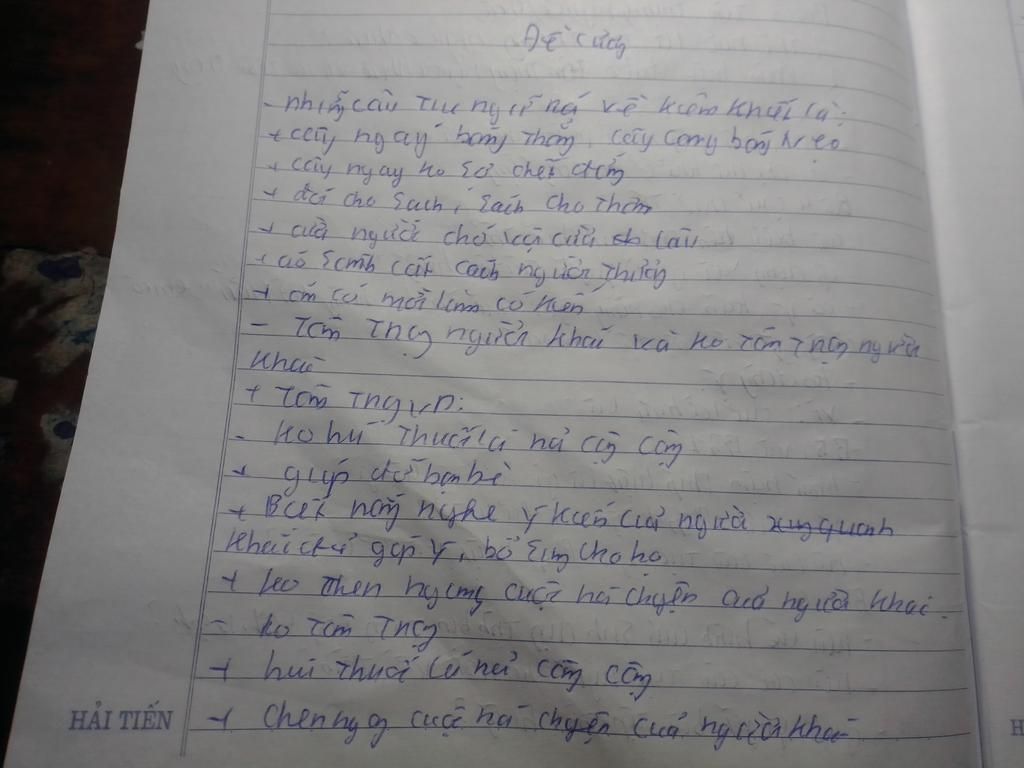 Đề cương
- những câu tục ngữ nói về liêm khiết là:
+ cây ngay bóng thẳng, cây cong bóng vẹo
+ cây ngay ko sợ chết đứng
+ đói cho sạch, rách cho thơm
+ của người chớ
+ áo rách cốt cách người thương
+ có mới có
- Tôn Trọng người khác và ko tôn trọng người
khác
+ Tôn Trọng
- ko hút thuốc lá nơi công cộng
+ giúp đỡ bạn bè
+ Biết lắng nghe ý kiến của người xung quanh
khác góp ý, bổ sung cho họ
+ ko chen ngang cuộc nói chuyện của người khác.
- ko tôn trọng
+ hút thuốc lá nơi công cộng
+ chen ngang cuộc nói chuyện của người khác
HẢI TIẾN